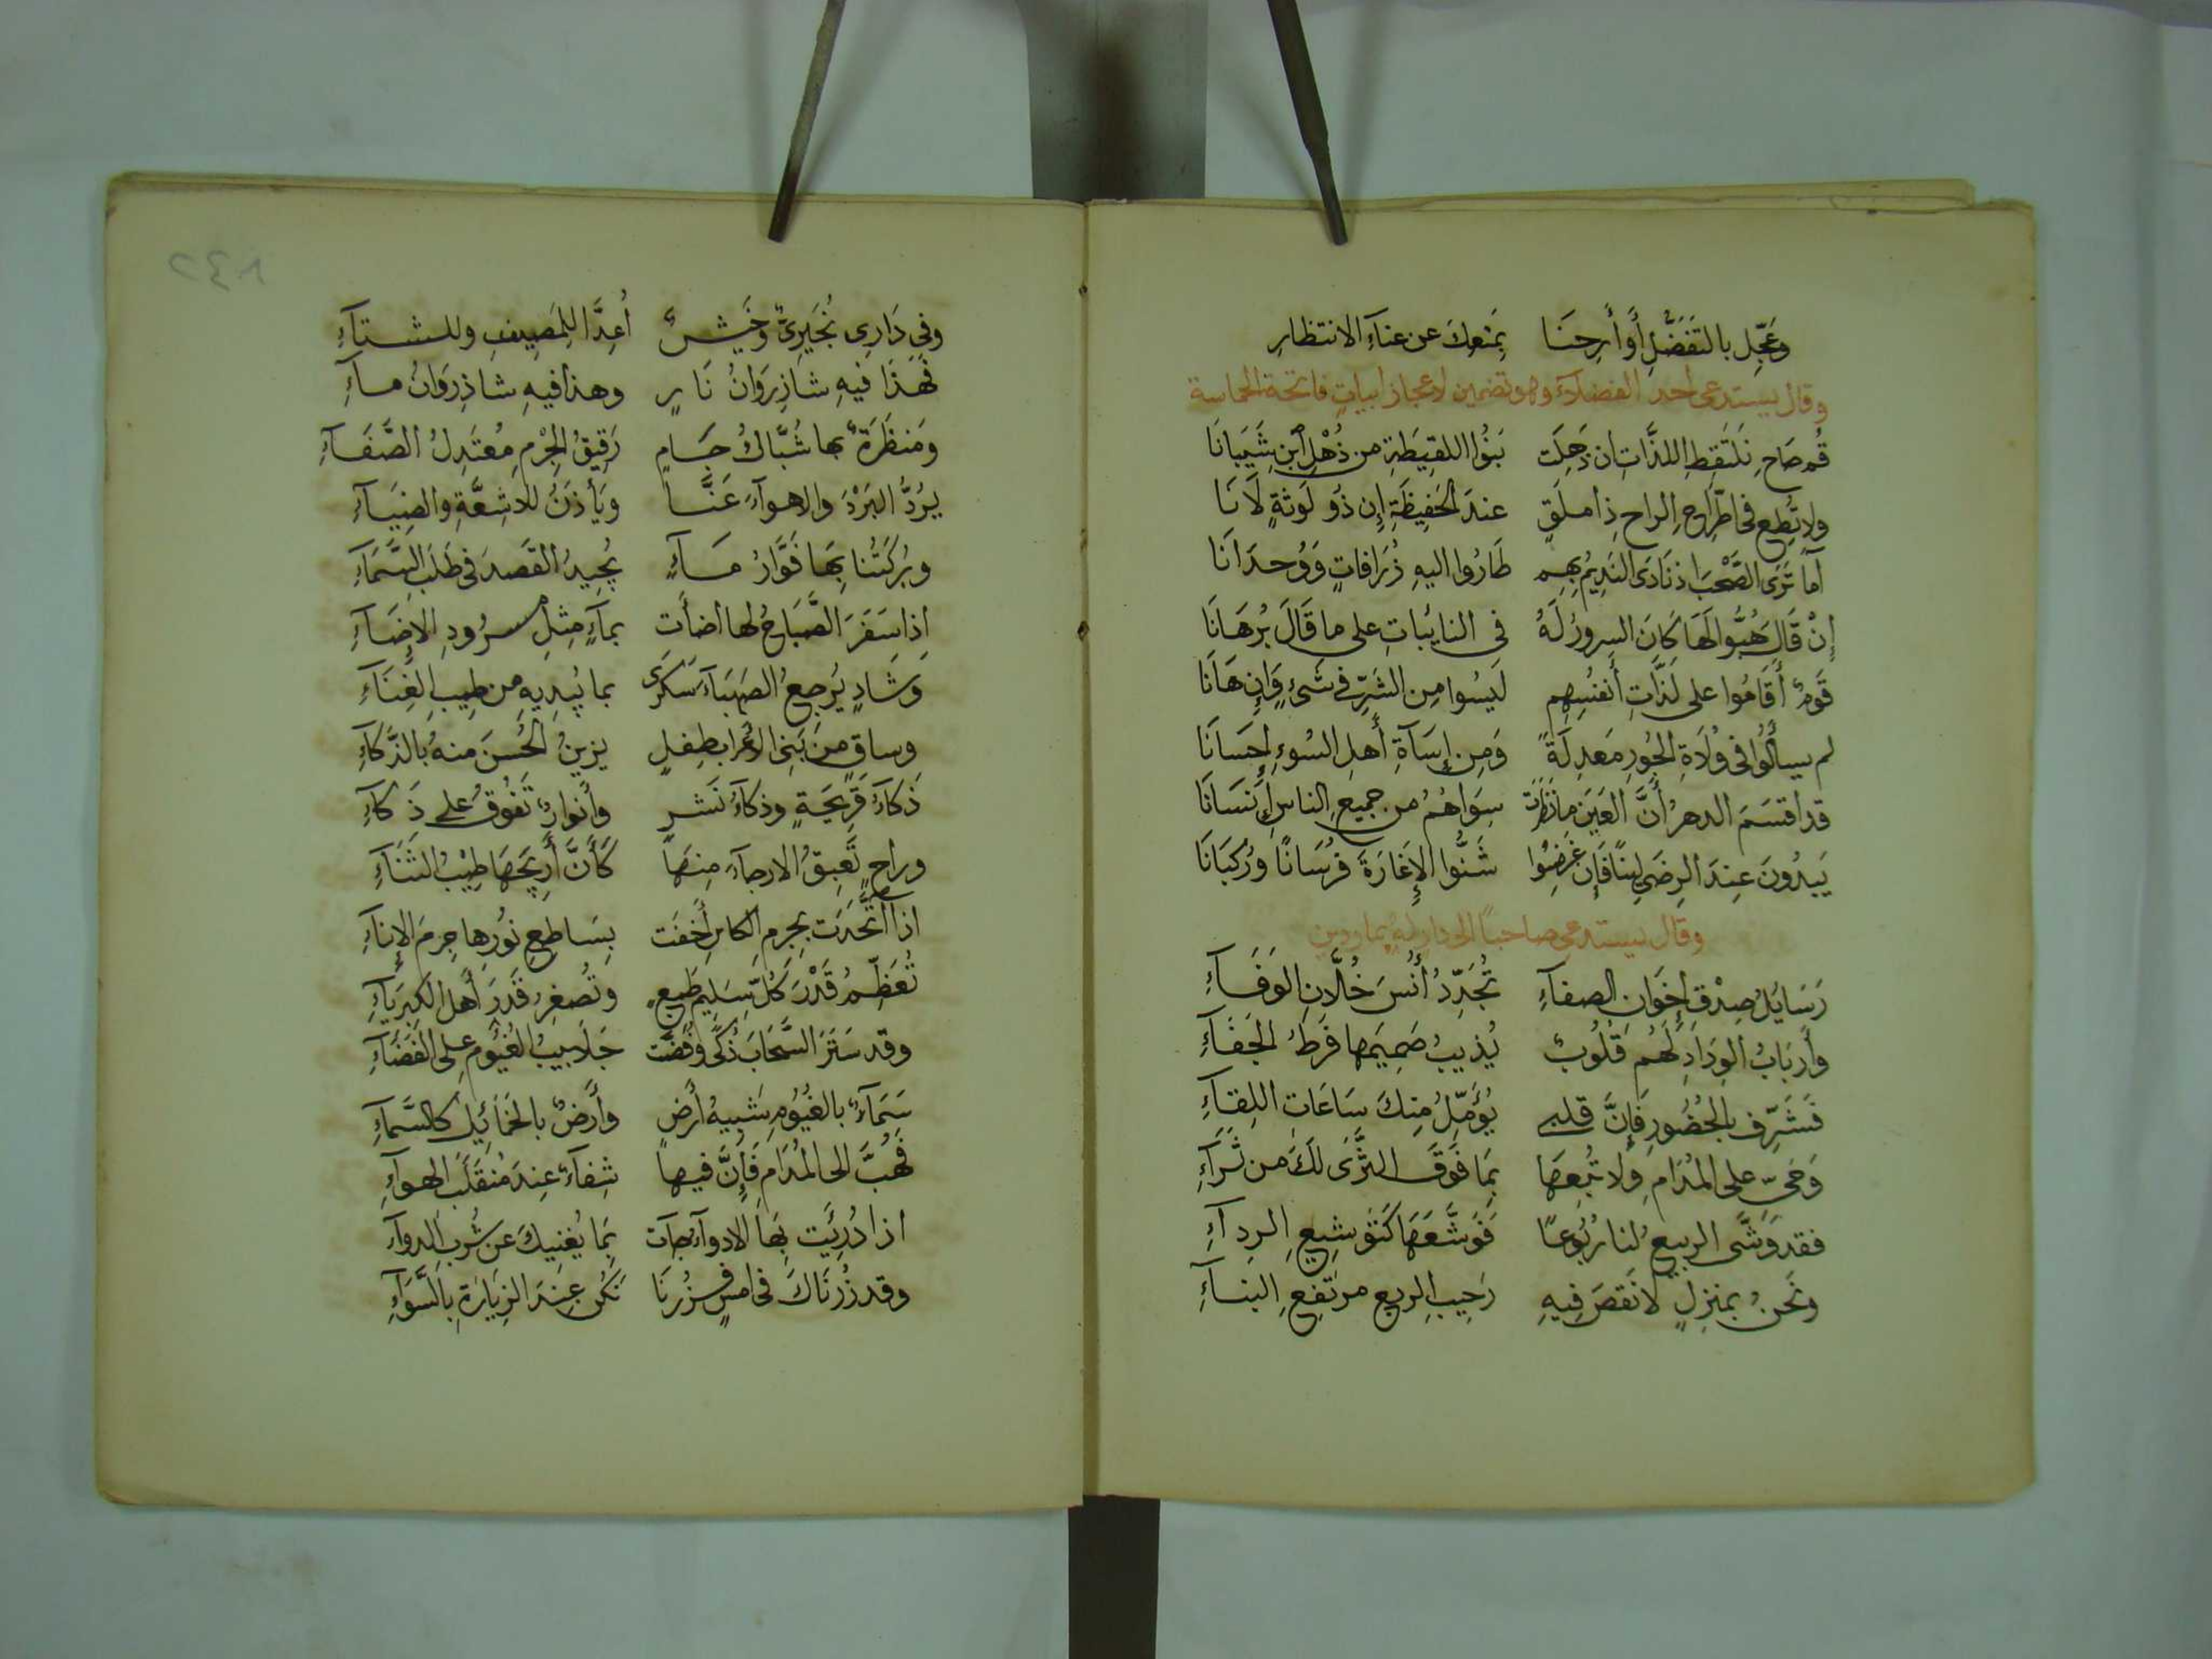 وَعَجِّل بالتَفَضُّلِ أَو أَرِحنَا بِمَنعِكَ عن عنآءِ الانتظارِ
وقال يستدعى أحد الفضلآء وهو تضمين لاعجاز ابيات فاتحة الحماسة
قُم صَاحِ نَلتَقِطِ اللذَّاتِ ان ذَهِلَت بَنُوا اللقِيطَةِ من ذُهْلِ ابنِ شَيبَانَا
ولا تُطِع فى اطّراحِ الراحِ ذا ملَقٍ عندَ الحَفِيظَةِ إِن ذُو لَوثةٍ لَانَا
اَما تَرَى الصَّحْبَ اذ نَادَى النَدِيمُ بِهِم طَارُوا اليهِ زُرَافاتٍ وَوُحدَانَا
إِنْ قَالَ هُبُّوا لَهَا كَانَ السرورُ لَهُ فى النايباتِ على ما قَالَ بُرهَانَا
قَومٌ أَقَامُوا على لَذَّاتِ أَنفُسِهِم لَيسُوا مِن الشَرِّ فى شَىءٍ وَإِن هَانَا
لم يسألُوا فى وُلَاةِ الجُورِ مَعدِلَةً وَمِن إِسَآةِ أَهلِ السُوءِ إحسَانَا
قد اقسَمَ الدهرُ أَنَّ العَينَ ما نظرَت سِوَاهُمُ من جميعِ الناسِ إِنسَانَا
يَبدُونَ عِندَ الرِضَى لِينًا فَإِن غَضِبُوا شَنُّوا الإِغَارَةَ فرُسَانًا ورُكبَانَا
وقال يستدعى صاحبًا الى دارله بماردين
رَسَايلُ صِدْقِ إخوَانِ الصفآءِ تُجَدِّدُ أُنسَ خُلَّانِ الوَفَآءِ
وأَربَابُ الوِدَادِ لَهُم قُلُوبٌ يُذيبُ صَمِيمَها فَرطُ الجَفَآءِ
فَشَرِّف بالحُضُورِ فَإِنَّ قلبى يُؤَمِّلُ مِنكَ سَاعَاتِ اللِقآءِ
وَحَىِّ على المُدَامِ ولا تُبِعهَا بِمَا فَوقَ الثَّرَى لَكَ من ثَرَآءِ
فقد وَشَّى الربيعُ لنا رُبُوعًا فَوَشَّعَهَا كَتَوشِيعِ الرِدآءِ
ونَحنُ بمنزلٍ لا نَقصَ فِيهِ رَحِيبِ الربعِ مرتفِعِ البنآءِ
وفى دَارِى بُخَيرِىٌّ وخَيشٌ أُعِدَّا للمَصِيفِ وللشتآءِ
فَهَذَا فيهِ شاذِروَانُ نَارٍ وهذا فيهِ شاذِروَانُ مآءِ
ومَنظَرَةٌ بها شُبَّاكُ جَامٍ رَقِيقُ الجِرْمِ مُعتَدِلُ الصَّفَآءِ
يرُدُّ البَرْدَ والاهوآءَ عَنَّا ويَأذَنُ للاشِعَّةِ والضِيَآءِ
وبُركَتُنا بِهَا فَوَّارُ مَآءٍ يُجِيدُ القَصدَ فى طَلَبِ السَّمَآءِ
اذا سَفَرَ الصَّبَاحُ لها اضآت بمآءٍ مِثلِ مسرُودِ الإضَآءِ
وَشَادٍ يُرجِعُ الصَهبَآءَ سَكرَى بما يُبدِيهِ من طِيبِ الغِنَآءِ
وساقٍ من بَنِى الأعرابِ طِفلٍ يزينُ الحُسنَ منهُ بالذَّكآءِ
ذَكآءَ قَرِيحَةٍ وذكآءَ نَشرٍ وأَنوارٍ تَفُوقُ على ذَكآءِ
وراحٍ تَعبِقُ الارجآءَ مِنهَا كَأَنَّ أَرِيجَهَا طِيْبُ الثَنَآءِ
اذا اتَّحَدَت بجِرمِ الكاسِ أَخفَت بِسَاطِعِ نُورِها جِرمَ الإِنآءِ
تُعَظِّمُ قَدْرَ كُلِّ سَلِيمِ طَبعٍ وتُصغِرُ قَدرَ أَهلِ الكبرِيَآءِ
وقد سَتَرَ السَّحَابَ ذُكًى وفُضَّت جَلَابيبُ الغُيُومِ على الفَضَآءِ
سَمَآءٌ بالغُيُومِ شَبيهُ أَرضٍ وأَرضٌ بالخَمَائِلِ كالسَّمآءِ
فَهُبَّ الى المُدَامِ فَإِنَّ فيها شِفآءً عِندَ مُنقَلَبِ الهوآءِ
اذا دُرِيَت بِهَا الادوآءُ جآت بِمَا يُغنِيكَ عن شُربِ الدوآءِ
وقد زُرنَاكَ فى امسٍ فزُرنَا نَكُن عِندَ الزِيَارَةِ بالسَّوَآءِ